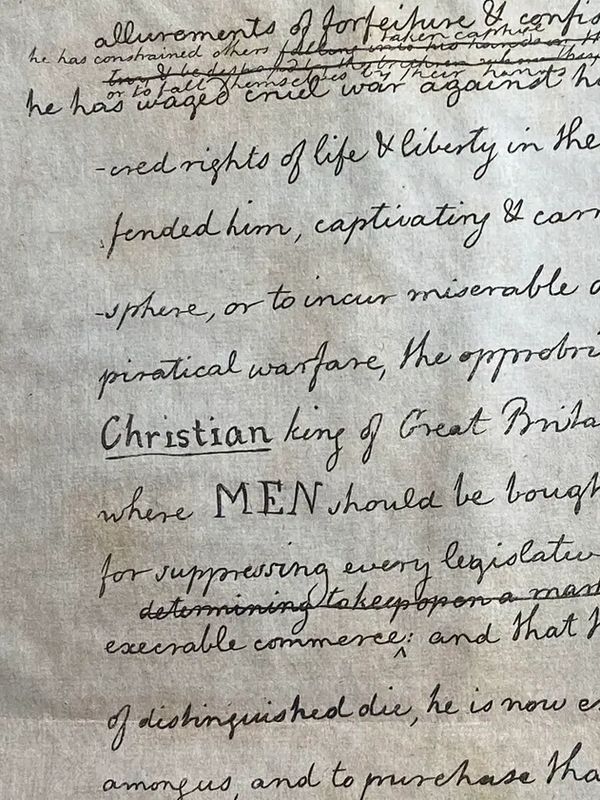 allurements of forfeiture & confis
taken captive
he has constrained others falling into his hands
or to fall themselves by their hands
he has waged cruel war against h
-cred rights of life & liberty in the
fended him, captivating & carr
-sphere, or to incur miserable
piratical warfare, the opprobri
Christian king of Great Brita
where MEN should be bough
for suppressing every legislativ
determining to keep open a mark
execrable commerce: and that
of distinguished die, he is now e
among us, and to purchase tha